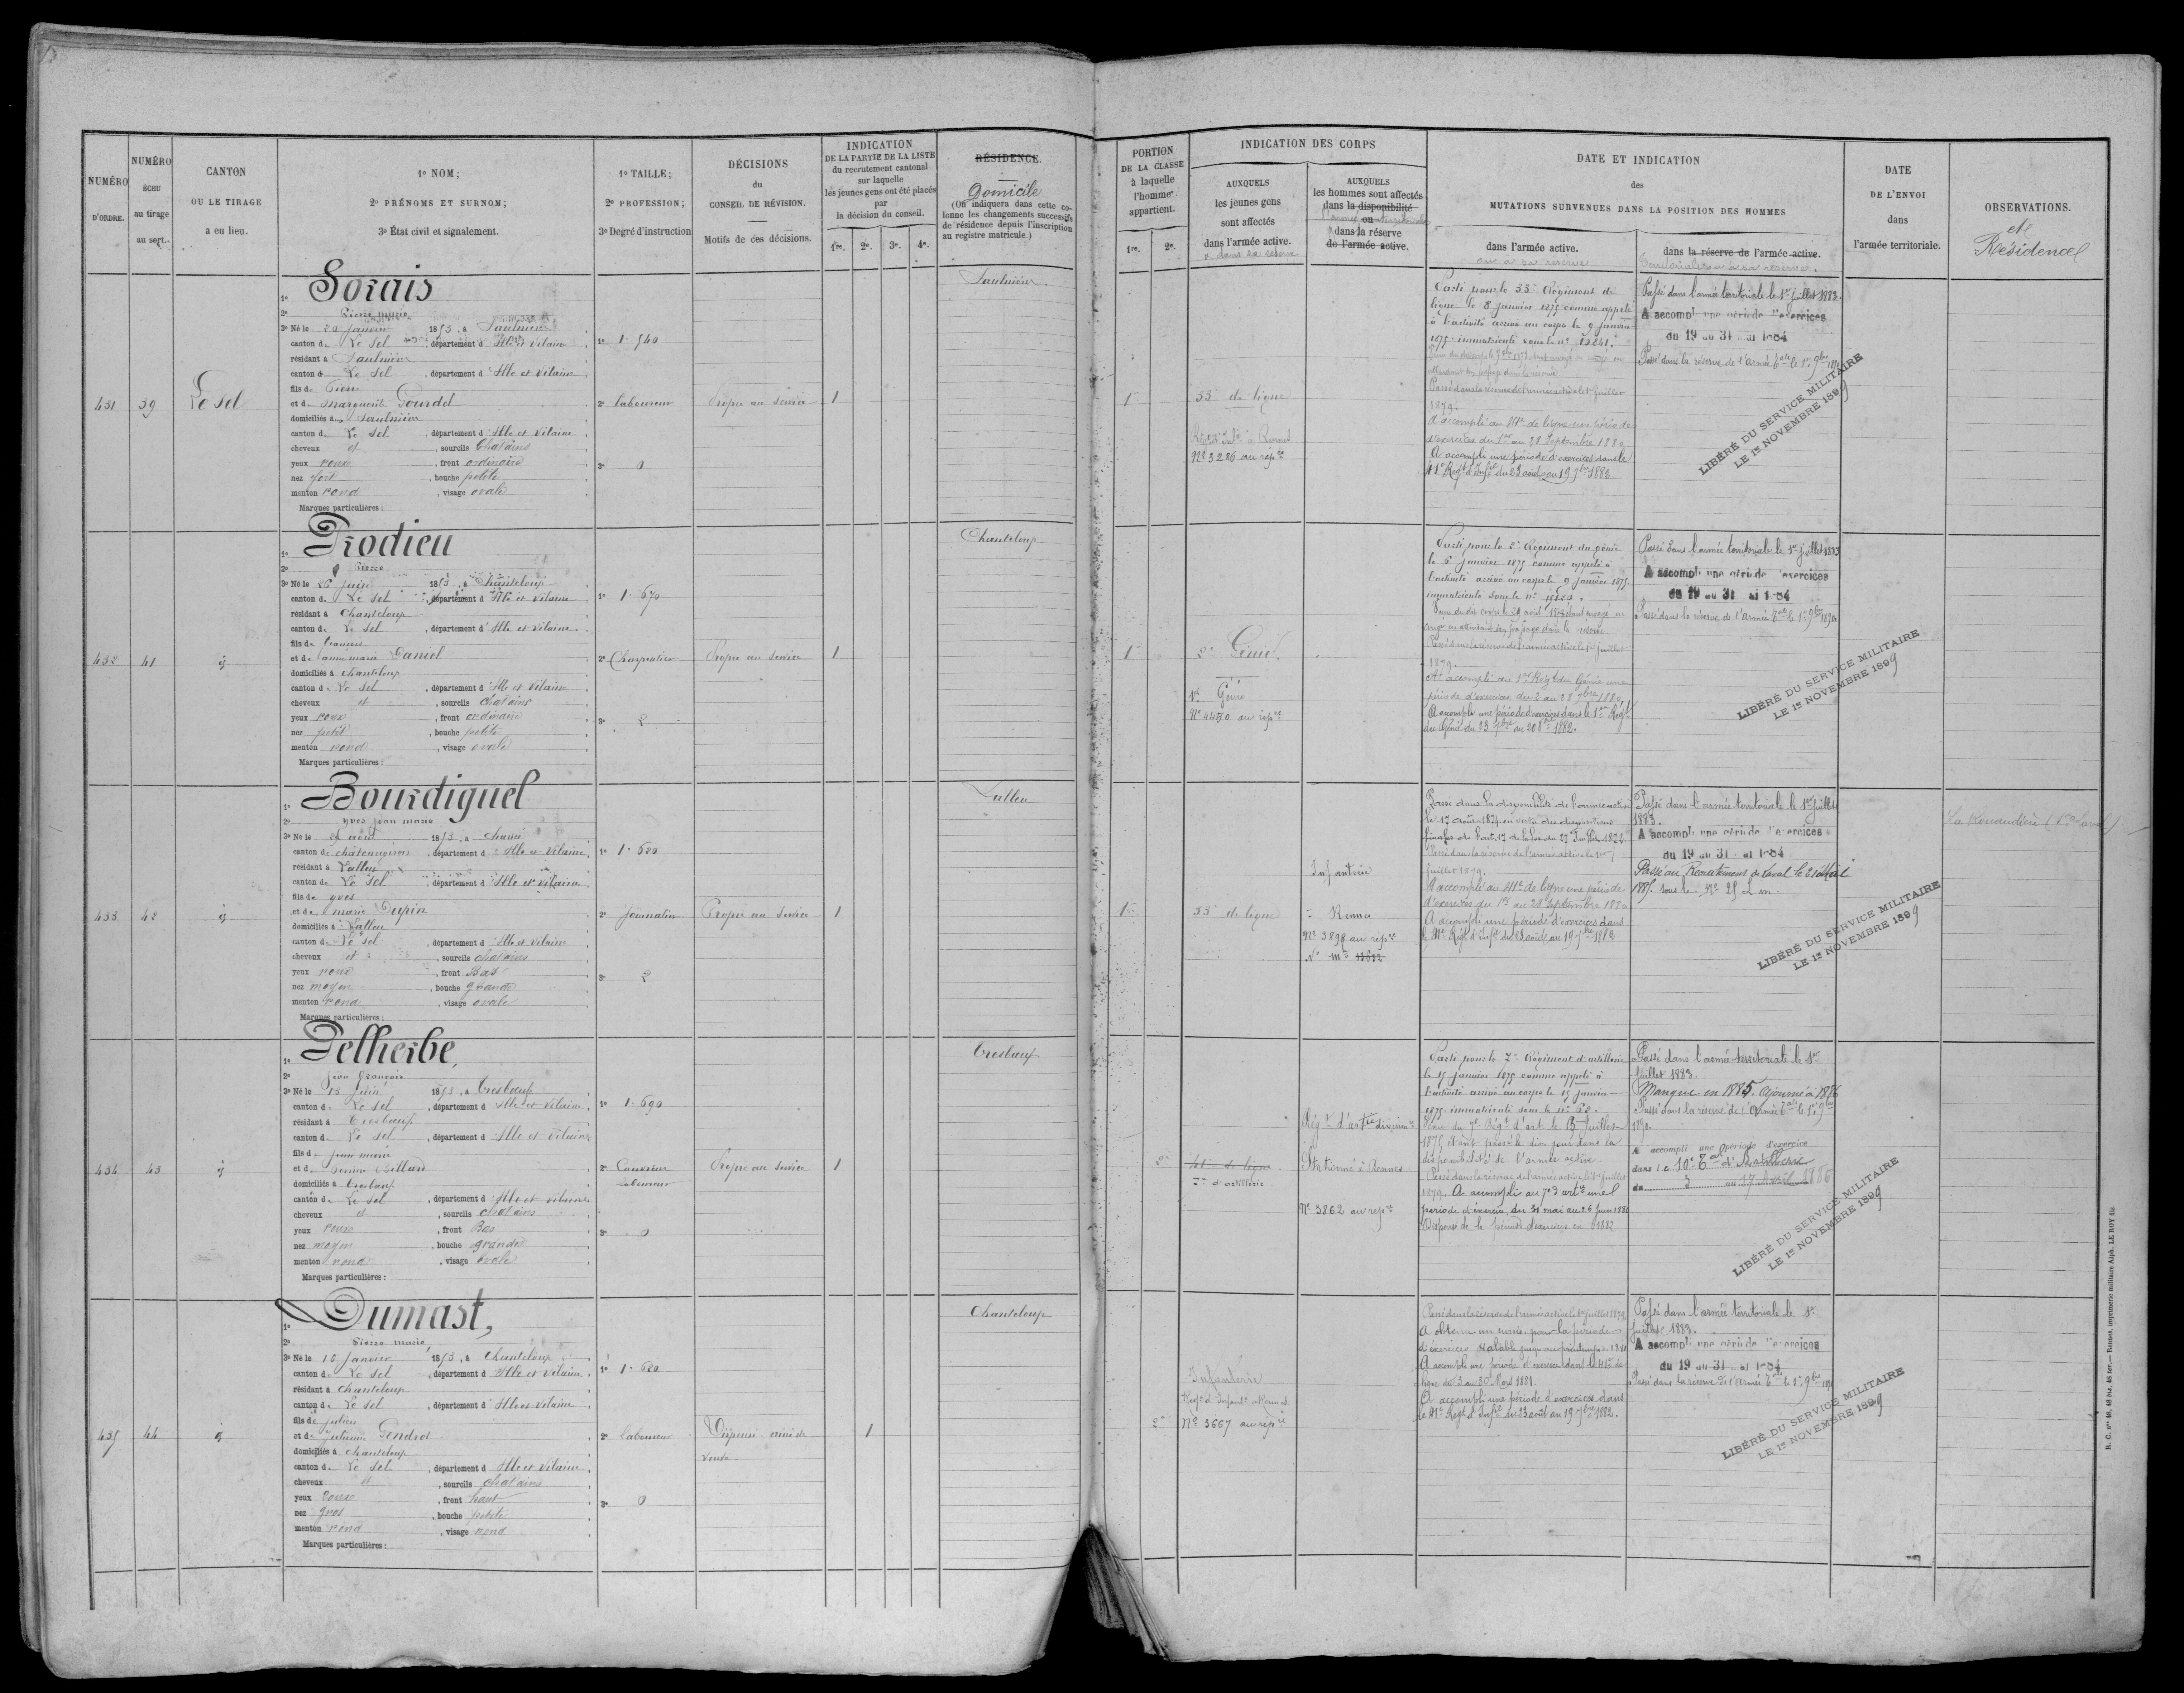 NUMÉRO D'ORDRE.
NUMÉRO ÉCHU au tirage au sort.
CANTON OU LE TIRAGE a eu lieu.
1º NOM;
2º PRÉNOMS ET SURNOM;
3º État civil et signalement.
1º TAILLE;
2º PROFESSION;
3º Degré d'instruction
DÉCISIONS du CONSEIL DE RÉVISION.
Motifs de ces décisions.
INDICATION
DE LA PARTIE DE LA LISTE
du recrutement cantonal
sur laquelle
les jeunes gens ont été placés
par
la décision du conseil.
1re. 2e. 3e. 4e.
RÉSIDENCE.
Domicile
(On indiquera dans cette colonne les changements successifs de résidence depuis l'inscription au registre matricule.)
PORTION
DE LA CLASSE
à laquelle
l'homme
appartient.
1re. 2e.
INDICATION DES CORPS
AUXQUELS
les jeunes gens
sont affectés
dans l'armée active.
ou dans sa réserve
AUXQUELS
les hommes sont affectés
dans la disponibilité
ou
dans la réserve
de l'armée active.
DATE ET INDICATION
des
MUTATIONS SURVENUES DANS LA POSITION DES HOMMES
dans l'armée active.
ou à sa réserve
dans la réserve de l'armée active.
territoriale ou à sa réserve.
DATE
DE L'ENVOI
dans
l'armée territoriale.
OBSERVATIONS.
et
Résidence
431
39
Le Sel
1º Sorais
2º Pierre marie
3º Né le 20 Janvier 1853, à Saulnières
canton de Le Sel, département d'Ille et Vilaine
résidant à Saulnières
canton de Le Sel, département d'Ille et Vilaine
fils de Pierre
et de Marguerite Gourdel
domiciliés à Saulnières
canton de Le Sel, département d'Ille et Vilaine
cheveux et, sourcils Chatains
yeux roux, front ordinaire
nez fort, bouche petite
menton rond, visage ovale
Marques particulières :
1º 1.540
2º laboureur
3º 0
Propre au service
1
Saulnières
1re
33e de ligne
Régt d'Infie à Rennes
Nº 3286 au repre
Parti pour le 33e Régiment de
ligne le 8 janvier 1875 comme appelé
à l'activité arrivé au corps le 9 janvier
1875 immatriculé sous le nº 10241.
Passé dans la réserve de l'armée active le 1er juillet
1879.
A accompli au 41e de ligne une période
d'exercices du 1er au 28 Septembre 1880
A accompli une période d'exercices dans le
41e Régt d'Infie du 23 août au 19 7bre 1882.
Passé dans l'armée territoriale le 1er juillet 1883.
A accompli une période d'exercices
du 19 au 31 mai 1884
Passé dans la réserve de l'Armée Tale le 1er 9bre
LIBÉRÉ DU SERVICE MILITAIRE
LE 1er NOVEMBRE 1899
432
41
id
1º Prodieu
2º Pierre
3º Né le 26 Juin 1853, à Chanteloup
canton de Le Sel, département d'Ille et Vilaine
résidant à Chanteloup
canton de Le Sel, département d'Ille et Vilaine
fils de François
et de Anne marie Daniel
domiciliés à Chanteloup
canton de Le Sel, département d'Ille et Vilaine
cheveux et, sourcils Chatains
yeux roux, front ordinaire
nez petit, bouche petite
menton rond, visage ovale
Marques particulières :
1º 1.670
2º Charpentier
3º 2
Propre au service
1
Chanteloup
1re
2e Génie.
1er Génie
Nº 4470 au repre
Parti pour le 2e Régiment du génie
le 6 janvier 1875 comme appelé à
l'activité arrivé au corps le 9 janvier 1875
immatriculé sous le nº
congé en attendant son passage dans la réserve
Passé dans la réserve de l'armée active le 1er juillet
1879.
A accompli au 1er Régt du Génie une
période d'exercices du 2 au 29 9bre 1880.
A accompli une période d'exercices dans le 1er Régt
du Génie du 23 7bre au 20 8bre 1882.
Passé dans l'armée territoriale le 1er juillet 1883
A accompli une période d'exercices
du 19 au 31 mai 1884
Passé dans la réserve de l'Armée Tale le 1er 9bre
LIBÉRÉ DU SERVICE MILITAIRE
LE 1er NOVEMBRE 1899
433
42
id
1º Bourdiguel
2º Yves jean marie
3º Né le août 1853, à Chancé
canton de Châteaugiron, département d'Ille et Vilaine
résidant à Lalleu
canton de Le Sel, département d'Ille et Vilaine
fils de Yves
et de Marie Dupin
domiciliés à Lalleu
canton de Le Sel, département d'Ille et Vilaine
cheveux et, sourcils chatains
yeux roux, front Bas
nez moyen, bouche grande
menton rond, visage ovale
Marques particulières :
1º 1.620
2º Journalier
3º 2
Propre au Service
1
Lalleu
1re
33e de ligne
Infanterie
Rennes
Nº 3898 au repre
Passé dans la disponibilité de l'armée active
le 17 août 1874 en vertu des dispositions
finales de l'art. 17 de la loi du 27 Juillet 1872
Passé dans la réserve de l'armée active le 1er
juillet 1879.
A accompli au 41e de ligne une période
d'exercices du 1er au 28 Septembre 1880
A accompli une période d'exercices dans
le 41e Régt d'Infie du 23 août au 19 7bre 1882
Passé dans l'armée territoriale le 1er juillet
1883.
A accompli une période d'exercices
du 19 au 31 mai 1884
Passé au Recrutement de Laval le
sous le Nº 25 L.m.
LIBÉRÉ DU SERVICE MILITAIRE
LE 1er NOVEMBRE 1899
434
43
id
1º Pelherbe,
2º Jean François
3º Né le 15 Juin 1853, à Tresboeuf
canton de Le Sel, département d'Ille et Vilaine
résidant à Tresboeuf
canton de Le Sel, département d'Ille et Vilaine
fils de Jean marie
et de Jeanne Billard
domiciliés à Tresboeuf
canton de Le Sel, département d'Ille et Vilaine
cheveux et, sourcils chatains
yeux roux, front Bas
nez moyen, bouche grande
menton rond, visage ovale
Marques particulières :
1º 1.690
2º Couvreur
laboureur
3º 0
Propre au service
1
Tresboeuf
2e
41e de ligne
7e d'artillerie
Régt d'artie divisionre
Stationné à Rennes
Nº 3862 au repre
Parti pour le 7e Régiment d'artillerie
le 15 janvier 1875 comme appelé à
l'activité arrivé au corps le 15 janvier
1875 immatriculé sous le nº 62.
disponibilité de l'armée active.
Passé dans la réserve de l'armée active le 1er juillet
1879. A accompli au 7e d'artie une
période d'exercice du 31 mai au 26 Juin 1880
Dispensé de la période d'exercices en 1882
Passé dans l'armée territoriale le 1er
Juillet 1883.
Manqué en 1885 Ajourné à 1886
Passé dans la réserve de l'Armée Tale le 1er 9bre
A accompli une période d'exercice
dans le 10e Tal d'Artillerie
du 3 au 17 Avril 1886
LIBÉRÉ DU SERVICE MILITAIRE
LE 1er NOVEMBRE 1899
435
44
id
1º Dumast,
2º Pierre marie
3º Né le 12 Janvier 1853, à Chanteloup
canton de Le Sel, département d'Ille et Vilaine
résidant à Chanteloup
canton de Le Sel, département d'Ille et Vilaine
fils de Julien
et de Julienne Gendrot
domiciliés à Chanteloup
canton de Le Sel, département d'Ille et Vilaine
cheveux et, sourcils chatains
yeux roux, front haut
nez gros, bouche petite
menton rond, visage rond
Marques particulières :
1º 1.620
2º laboureur
3º 0
Dispensé ainé de
veuve
1
Chanteloup
2e
Infanterie
Régt d'Infanie à Rennes
Nº 3667 au repre
Passé dans la réserve de l'armée active le 1er juillet 1879
A obtenu un sursis pour la période
d'exercices valable jusqu'au printemps 1881
A accompli une période d'exercices dans le 41e de
ligne du 3 au 30 Mars 1881
A accompli une période d'exercices dans
le 41e Régt d'Infie du 23 août au 19 7bre 1882.
Passé dans l'armée territoriale le 1er
juillet 1883.
A accompli une période d'exercices
du 19 au 31 mai 1884
Passé dans la réserve de l'Armée Tale le 1er 9bre
LIBÉRÉ DU SERVICE MILITAIRE
LE 1er NOVEMBRE 1899
R. C. nos 48, 48 bis, 48 ter.— Rennes, imprimerie militaire Alph. LE ROY fils